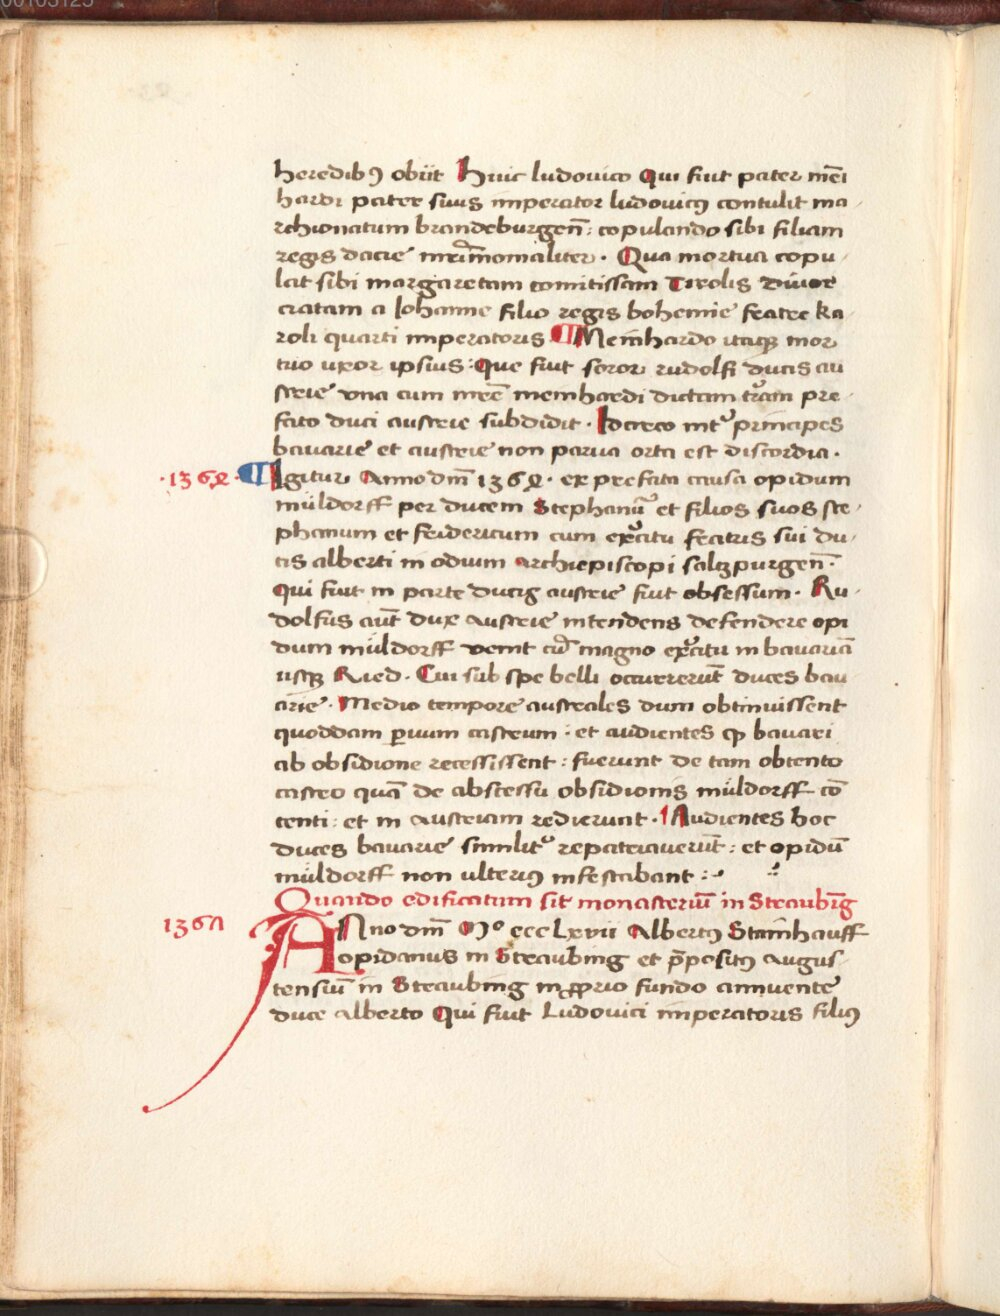 00103125
heredibꝰ obiit Huic ludouico Qui fiut pater mēi
hardi pater suus imperator ludouicꝰ contulit ma
rchionatum brandeburgeñ: copulando sibi filiam
regis dacie mr̄imonialiter. Qua mortua copu
lat sibi margaretam comitissam Tirolis diuor
ciatam a Johanne filio regis bohemie fratre ka
roli quarti imperatoris ¶ Meinhardo itaqꝫ mor
tuo uxor ipsius: Que fiut soror rudolfi ducis au
strie vna cum mr̄e meinhardi dictam tr̄am pre
fato duci austrie subdidit. Idcirco int̉ principes
bauarie et austrie non parua orta est discordia.
·1362· ¶ Igitur Anno dm̄ 1362. ex prefata causa opidum
müldorff per ducem Stephanū et filios suos ste
phanum et fridericum cum exc̉itu fratris sui du
cis alberti in odium archiepiscopi salczpurgeñ.
Qui fuit in parte ducis austrie fiut obsessum. Ru
dolfus aūt dux Austrie intendens defendere opi
dum müldorff venit cū magno exc̉itu in bauariā
usqꝫ Ried. Cui sub spe belli occurrerūt duces bau
arie. Medio tempore australes dum obtinuissent
quoddam ꝑuum castrum: et audientes ꝙ bauari
ab obsidione recessissent: fuerunt de tam obtento
castro quā de abscessu obsidionis müldorff cō
tenti: et in Austriam redierunt. Audientes hoc
duces bauarie similit̉ repatriauerūt: et opidū
müldorff non ulteriꝰ infestabant :~
Quando edificatum sit monasteriū in Straubīg
1367 ANno dm̄ Mº ccc lxvii Albertꝰ Stainhauff
opidanus in Straubing et p̄positꝰ Augus
tensiū in Straubing in ꝓprio fundo annuente
duce alberto Qui fiut Ludouici imperatoris filiꝰ